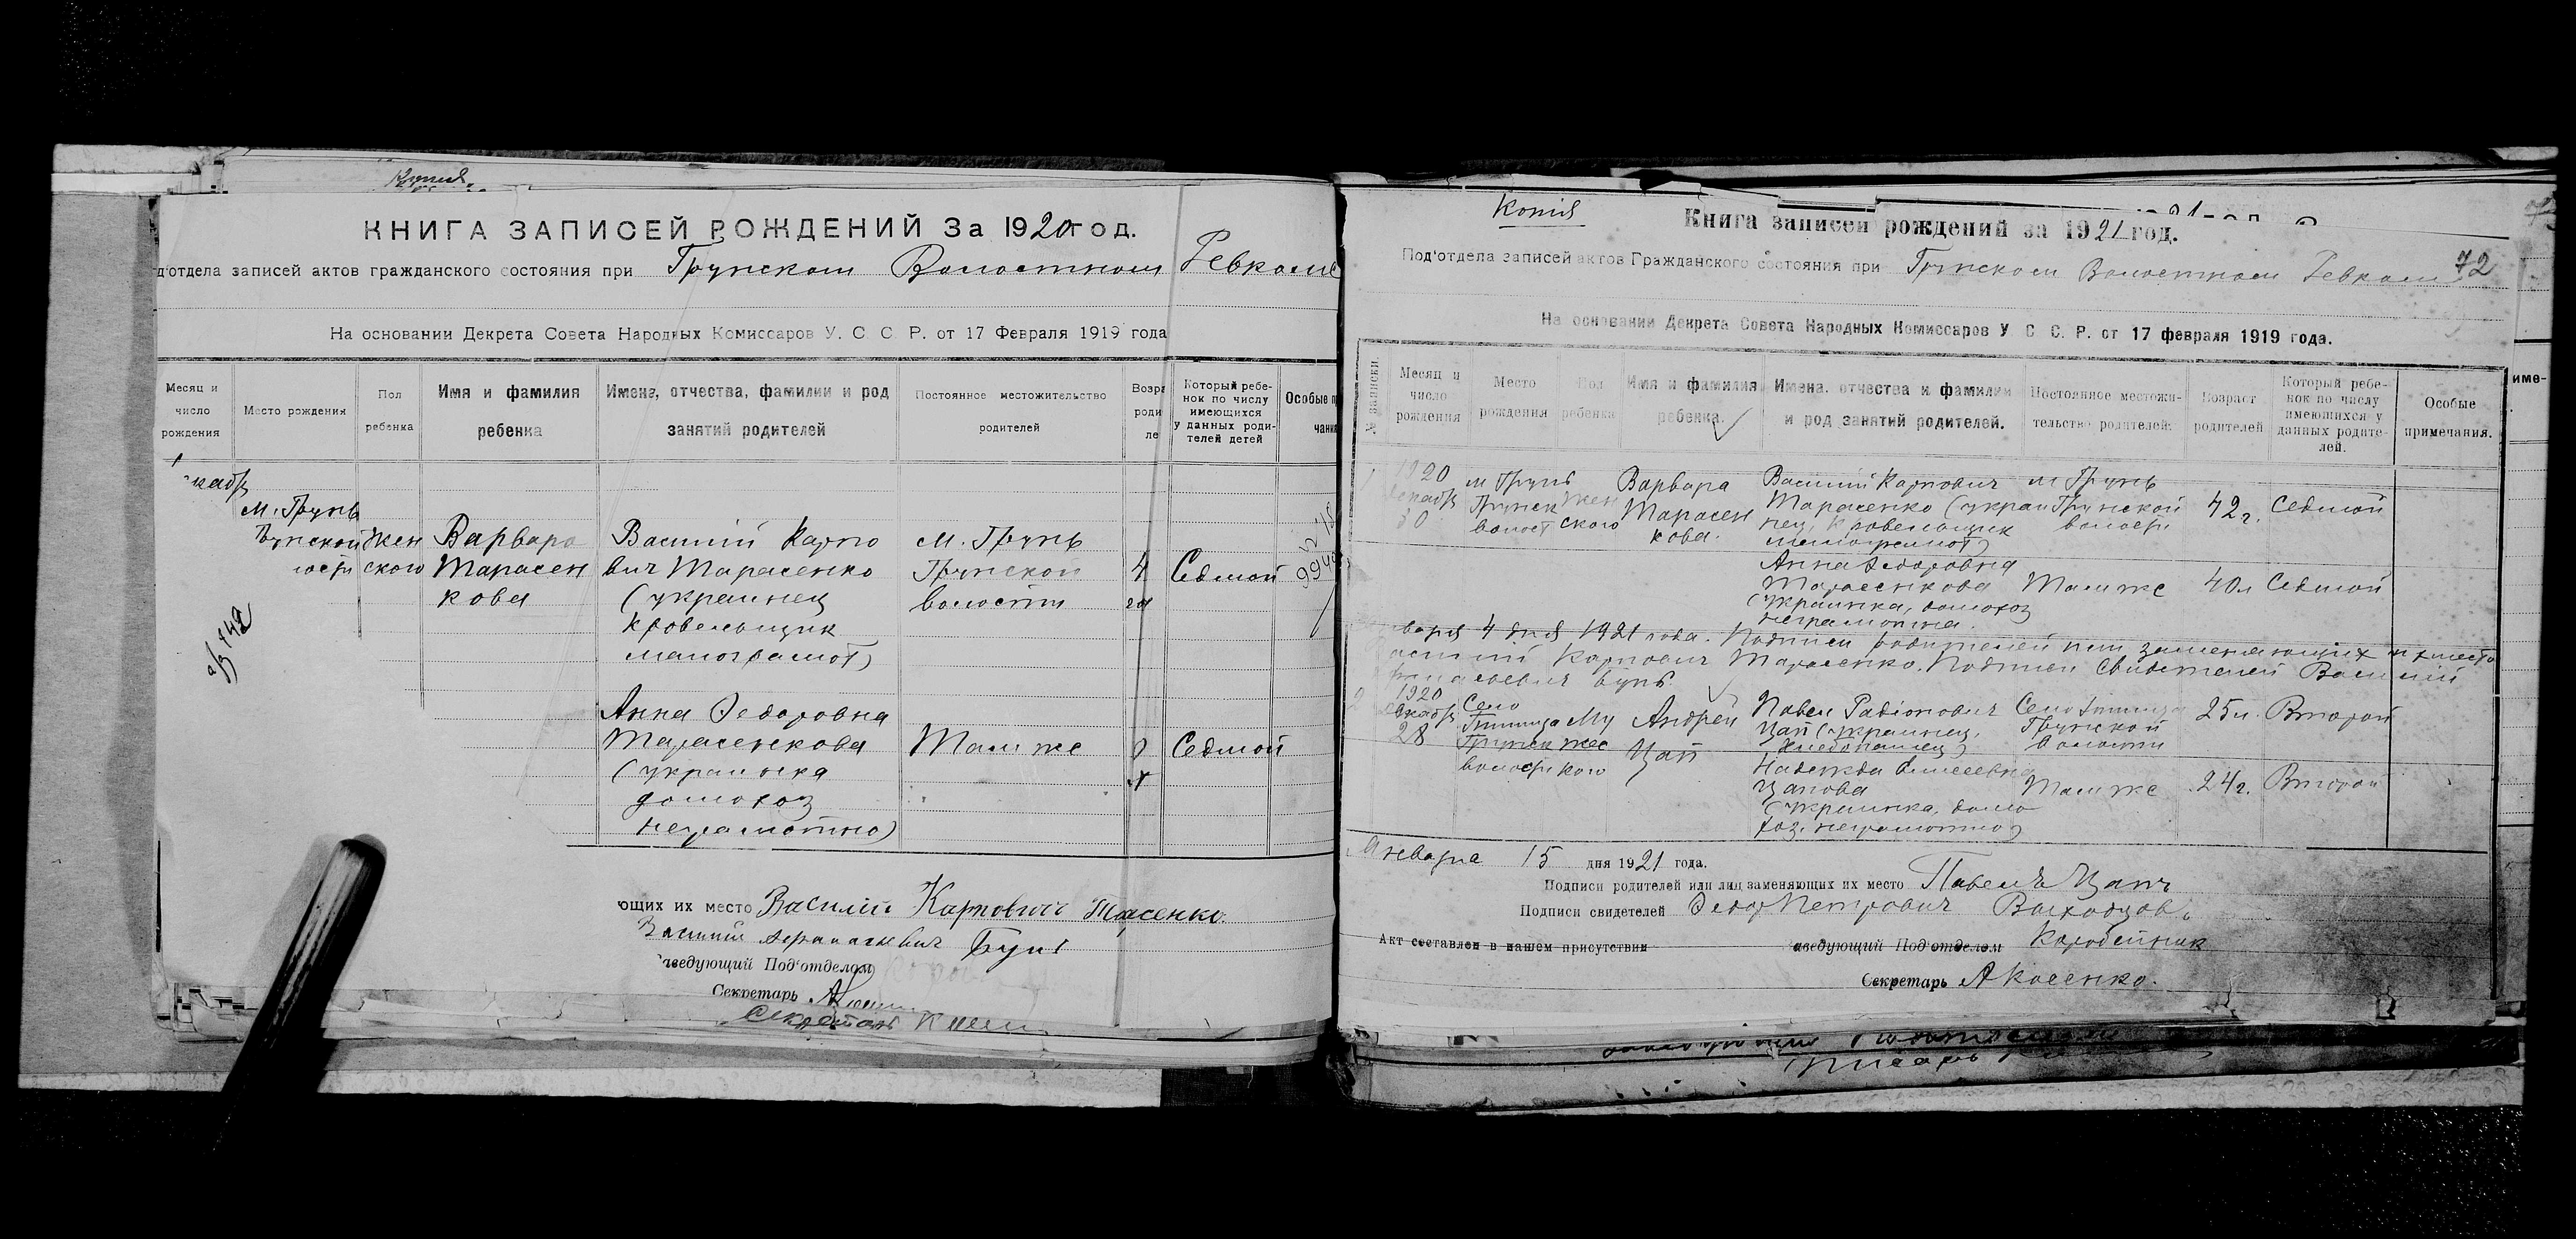 Копия
КНИГА ЗАПИСЕЙ РОЖДЕНИЙ За 1920 год.
д'отдела записей актов гражданского состояния при Грунском Волостном Ревкоме
На основании Декрета Совета Народных Комиссаров У. С. С. Р. от 17 Февраля 1919 года
Месяц и число рождения
Место рождения
Пол ребенка
Имя и фамилия ребенка
Имена, отчества, фамилии и род занятий родителей
Постоянное местожительство родителей
Возра роди ле
Который ребе-
нок по числу
имеющихся
у данных роди-
телей детей
Особые п
чани
кабр
м. Грунь
Грунской
Жен
ского
Варвара
Тарасен
кова
Василий Карпо
вич Тарасенко
(украинец
кровельщик
малограмот)
м. Грунь
Грунской
волости
4
Седмой
Анна Федоровна
Тарасенкова
(украинка
домохоз
неграмотна)
Там же
Седмой
ющих их место Василий Карпович Тарасенко.
Василий Афанасиевич Бунь
аведующий Под'отделом
Секретарь
Секретарь
Копия
Книга записей рождений за 1921 год.
72
Под'отдела записей актов Гражданского состояния при Грунском Волостном Ревкоме
На основании Декрета Совета Народных Комиссаров У С С. Р. от 17 февраля 1919 года.
№ записки
Месяц и
число
рождения
Место
рождения
Пол
ребенка
Имя и фамилия
ребенка.
Имена, отчества и фамилии
и род занятий родителей.
Постоянное местожи-
тельство родителей.
Возраст
родителей
Который ребе-
нок по числу
имеющихся у
данных родите-
лей.
Особые
примечания.
1
1920
декабр
30
м Грунь
Грунск
волост
Жен
ского
Варвара
Тарасен
кова.
Василий Карпович
Тарасенко (украи
нец, кровельщик
малограмот)
м Грунь
Грунской
волости
42 г.
Седмой
Анна Федоровна
Тарасенкова
(украинка, домохоз
неграмотна.
Там же
40 л
Седмой
варя 4 дня 1921 года. Подписи родителей или заменяющих их место
асилий Карпович Тарасенко. Подписи свидетелей Василий
Бунь
2
1920
декабр
28
Село
Грунск
волости
Му
жес
кого
Андрей
Цап
Павел Радионович
Цап (украинец,
хлебопашец)
Село
Грунской
волости
25 л.
Второй
Надежда
Цапова
(украинка, домо
хоз. неграмотна)
Там же
24 г.
Второй
Января 15 дня 1921 года.
Подписи родителей или лиц заменяющих их место Павелъ Цапъ
Подписи свидетелей Федор Петрович Выходцов
Акт составлен в нашем присутствии
аведующий Под'отделом Коробейник
Секретарь А Косенко.
Писарь